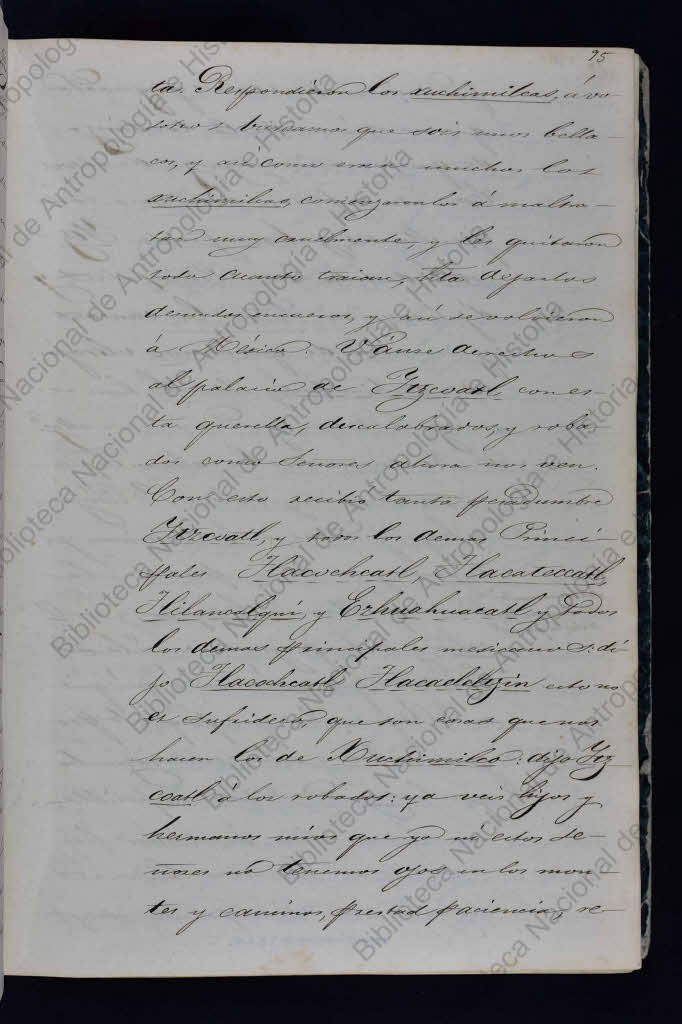 95
ta. Respondieron los xuchimilcas, á vo-
sotros buscamos que sois unos bella-
cos, y así como eran muchos los
xuchimilcas, comenzaronlos á maltra-
tar muy cruelmente, y les quitaron
todo cuanto traian, hta. dejarlos
desnudos en cueros, y así se volvieron
á México. Vánse derechos
al palacio de Ytzcoatl, con es-
ta querella, descalabrados, y roba-
dos como Señores ahora nos ven.
Con esto recibió tanta pesadumbre
Ytzcoatl, y todos los demas Princi-
pales Tlacochcatl, Tlacateccatl,
Tlilancalqui, y Ezhuahuacatl y todos
los demas principales mexicanos: di-
jo Tlacochcatl Tlacaeleltzin esto no
es sufridero, que son cosas que nos
hacen los de Xuchimilco: dijo Ytz
coatl á los robados: ya veis hijos y
hermanos mios que yo ni estos Se-
ñores no tenemos ojos en los mon-
tes y caminos, prestad paciencia, re-
Biblioteca Nacional de Antropología e Historia